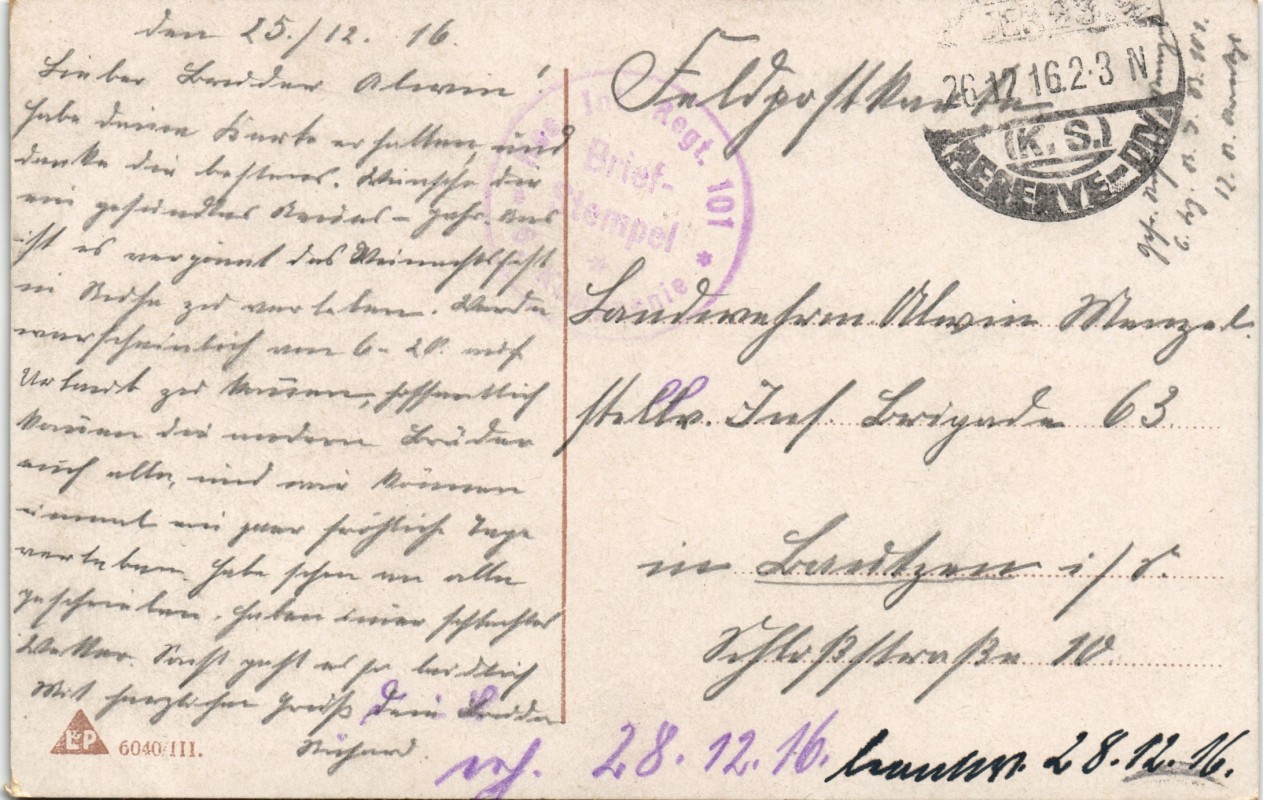 den 25./12. 16.
Lieber Bruder Alwin!
habe deine Karte erhalten, und
danke dir bestens. Wünsche dir
ein gesundes Neues-Jahr. Uns
ist es vergönnt das Weinachtsfest
in Ruhe zu verleben. Werde
warscheinlich am 6-20. auf
Urlaub zu kommen, hoffentlich
kommen die andern Brüder
auch alle, und wir können
einmal ein paar fröhliche Tage
verleben. Habe schon an alle
geschrieben. Haben immer schlechtes
Wetter. Sonst geht es so leidlich
Mit herzlichen Gruß Dein Bruder
Richard.
L&P 6040/III.
Feldpostkarte
26.12.16.2-3 N
(K. S.)
Res. Inf. Regt. 101
Brief-
Stempel
* Kompagnie *
6. Kg. R. J. R. 101.
12. R.
Landwehrm Alwin Menzel.
stellv. Inf Brigade 63.
in Bautzen i/S.
Schloßstraße 10.
erh. 28.12.16. beantw. 28.12.16.